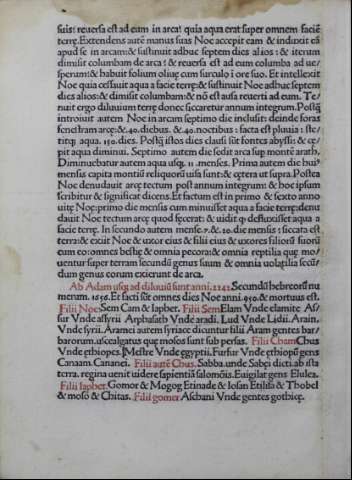 suis: reuersa est ad eum in arca: quia aqua erat super omnem facie
terre. Extendens aute manus suas Noe accepit eam & induxit ea
apud se in arcam: & sustinuit adhuc septem dies alios: & iterum
dimisit columbam de arca: & reuersa est ad eum columba ad ue/
sperum: & habuit folium oliue cum surculo i ore suo. Et intellexit
Noe quia cessauit aqua a facie terre: & sustinuit Noe adhuc septem
dies alios: & dimisit columbam: & no est ausa reuerti ad eum. Te/
nuit ergo diluuium terre donec siccaretur annum integrum. Postq
introiuit autem Noe in arcam septimo die inclusit: deinde foras
fenestram arce: &.40. diebus. &.40. noctibus: facta est pluuia: ste/
titq aqua. 150. dies. Postq istos dies clausi sut fontes abyssi: & ce/
pit aqua diminui. Septimo autem die sedit arca sup monte arath.
Diminuebatur autem aqua usq. 11. menses. Prima autem die hui9
mensis capita montiu reliquoru uisa sunt: & cetera ut supra. Postea
Noe denudauit arce tectum post annum integrum: & hoc ipsum
scribitur & significat dicens. Et factum est in primo & sexto anno
uite Noe: primo die mensis cum minuisset aqua a facie terre: denu
dauit Noe tectum arce quod fecerat: & uidit q defluxisset aqua a
facie terre. In secundo autem mense. 7. &. 20. die mensis: siccata est
terra: & exiit Noe & uxor eius & filii eius & uxores filioru suoru
cum eo: omnes bestie & omnia pecora: & omnia reptilia que mo/
uentur super terram secundu genus suum & omnia uolatilia secu/
dum genus eorum exierunt de arca.
Ab Adam usq ad diluuiu sunt anni. 2242. Secundu hebreoru nu
merum. 1656. Et facti sut omnes dies Noe anni. 950. & mortuus est.
Filii Noe: Sem Cam & Iaphet. Filii Sem Elam Vnde elamite As/
sur Vnde assyrii Arphasath Vnde aradii. Lud Vnde Lidii. Aram.
Vnde syrii. Aramei autem syriace dicuntur filii Aram gentes bar/
barorum. us
Vnde ethiopes. Mestre Vnde egyptii. Fursur Vnde ethiopu gens
Canaam. Cananei. Filii aute Chus. Sabba. unde Sabei dicti. ab ista
terra. regina uenit uidere sapientia salomois. Euigilat gens Elulea.
Filii Iaphet. Gomor & Mogog Etinade & Iosan Etilisa & Thobel
& moso & Chitas. Filii gomer Aschani Vnde gentes gothice.